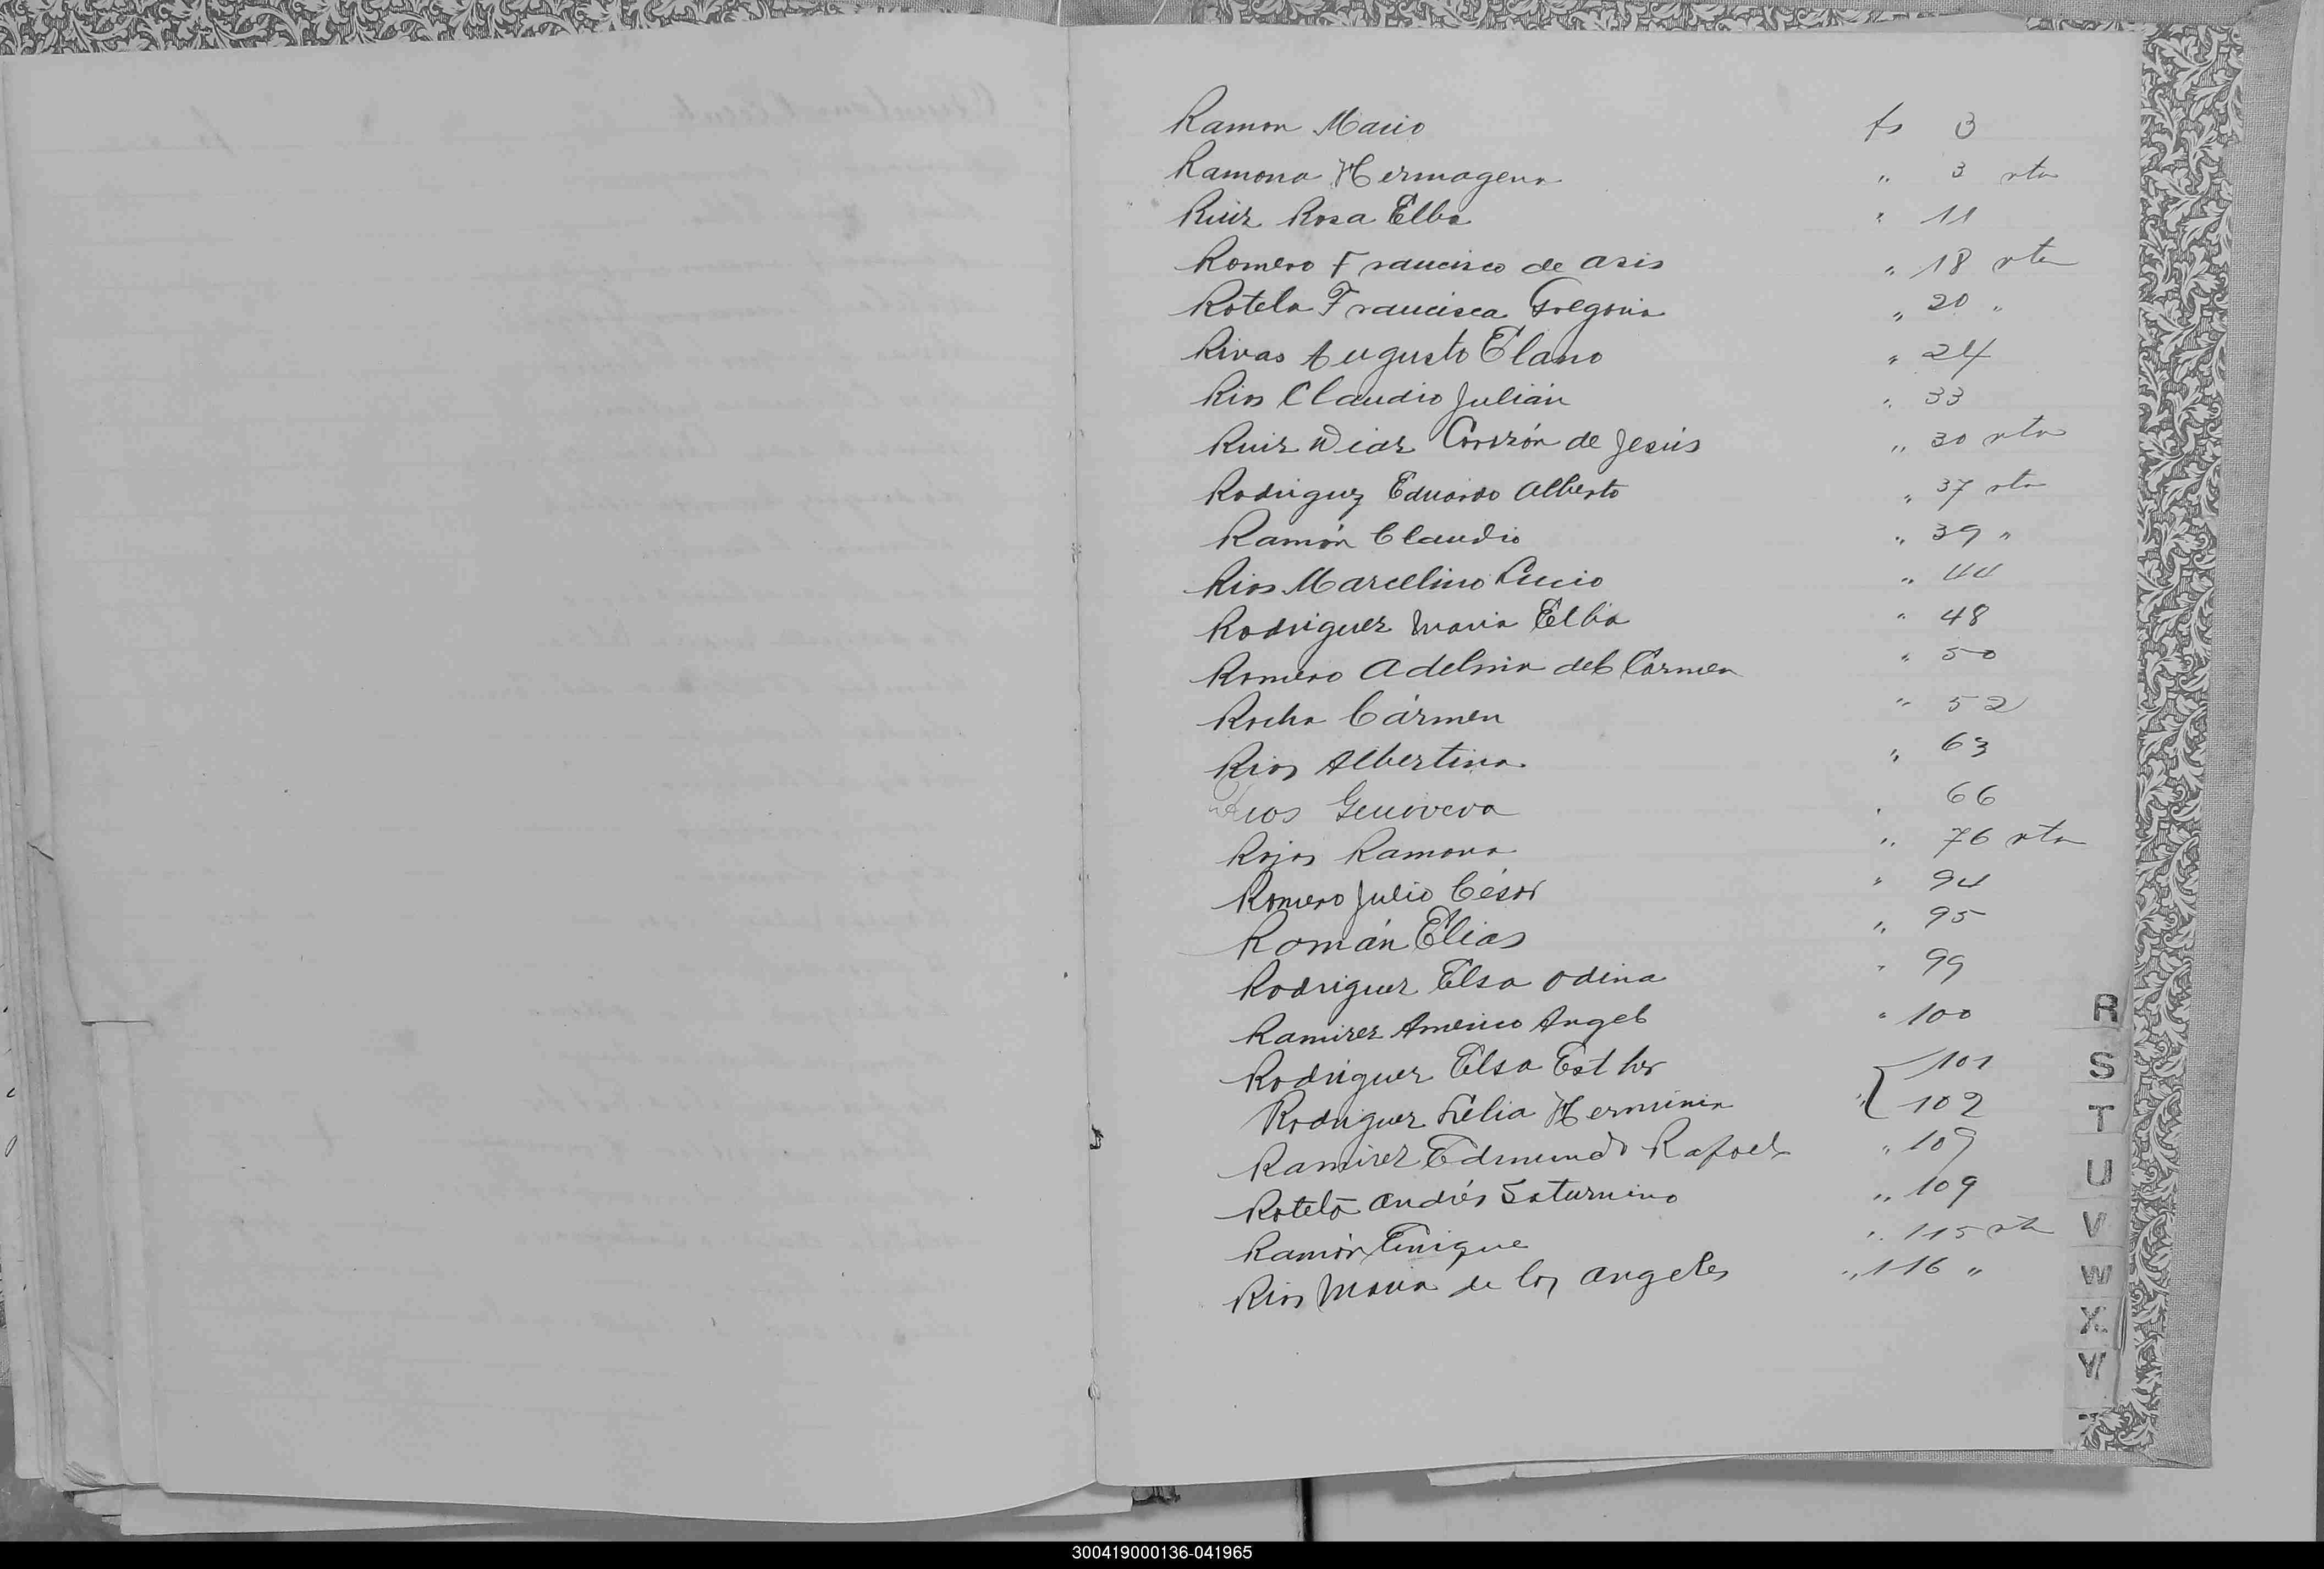 Ramon Mario fs 3
Ramona Hermagena " 3 vta
Ruiz Rosa Elba " 11
Romero Francisco de asis " 18 vta
Rotela Francisca Gregoria " 20 "
Rivas Augusto Elano " 24
Rios Claudio Julián " 33
Ruiz Diaz Corazón de Jesús " 30 vta
Rodriguez Eduardo Alberto " 37 vta
Ramón Claudio " 39 "
Rios Marcellino Lucio " 44
Rodriguez Maria Elba " 48
Romero Adelina del Carmen " 50
Rocha Cármen " 52
Rios Albertina " 63
Rios Genoveva 66
Rojas Ramona " 76 vta
Romero Julio César " 94
Román Elias " 95
Rodriguez Elsa Odina " 99
Ramirez Americo Angel " 100
Rodriguez Elsa Esther 101
Rodriguez Lelia Herminia " 102
Ramirez Edmundo Rafael " 109
Rotela Andrés Saturnino " 109
Ramón Enrique " 115 vta
Rios Maria de los Angeles " 116 "
R
S
T
U
V
W
X
Y
300419000136-041965